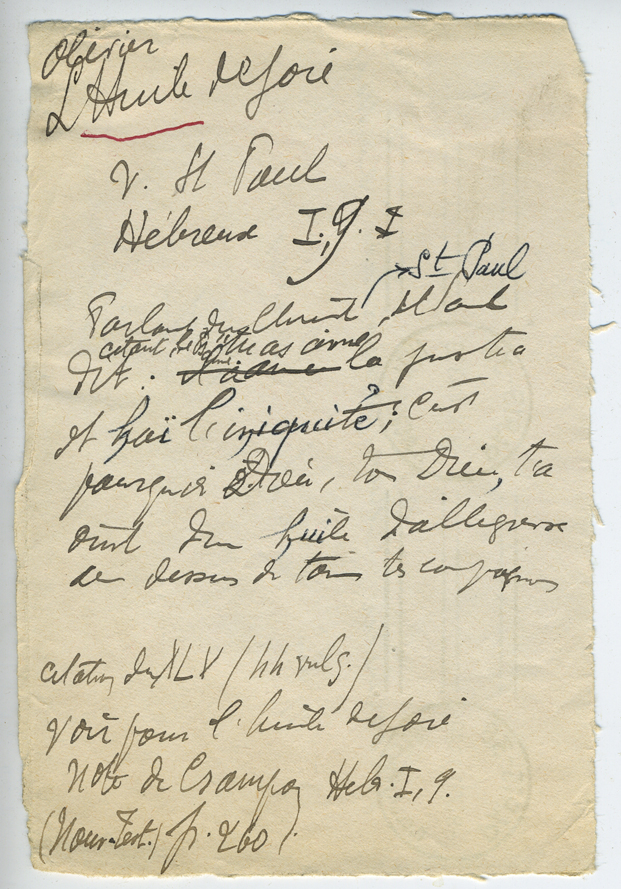 Olivier
L'Huile de Joie
V. St Paul
Hébreux I, 9. I
St Paul
Parlant du Christ, St Paul
citant le Psaume: "tu as aimé
dit: la justice
et haï l'iniquité; c'est
pourquoi Dieu, ton Dieu, t'a
oint d'une huile d'allégresse
au dessus de tous tes compagnons
citation du XLV (44 vulg.)
Voir pour l'huile de Joie
Note de Crampon Hebr. I, 9.
(Nouv. Test.) p. 260.